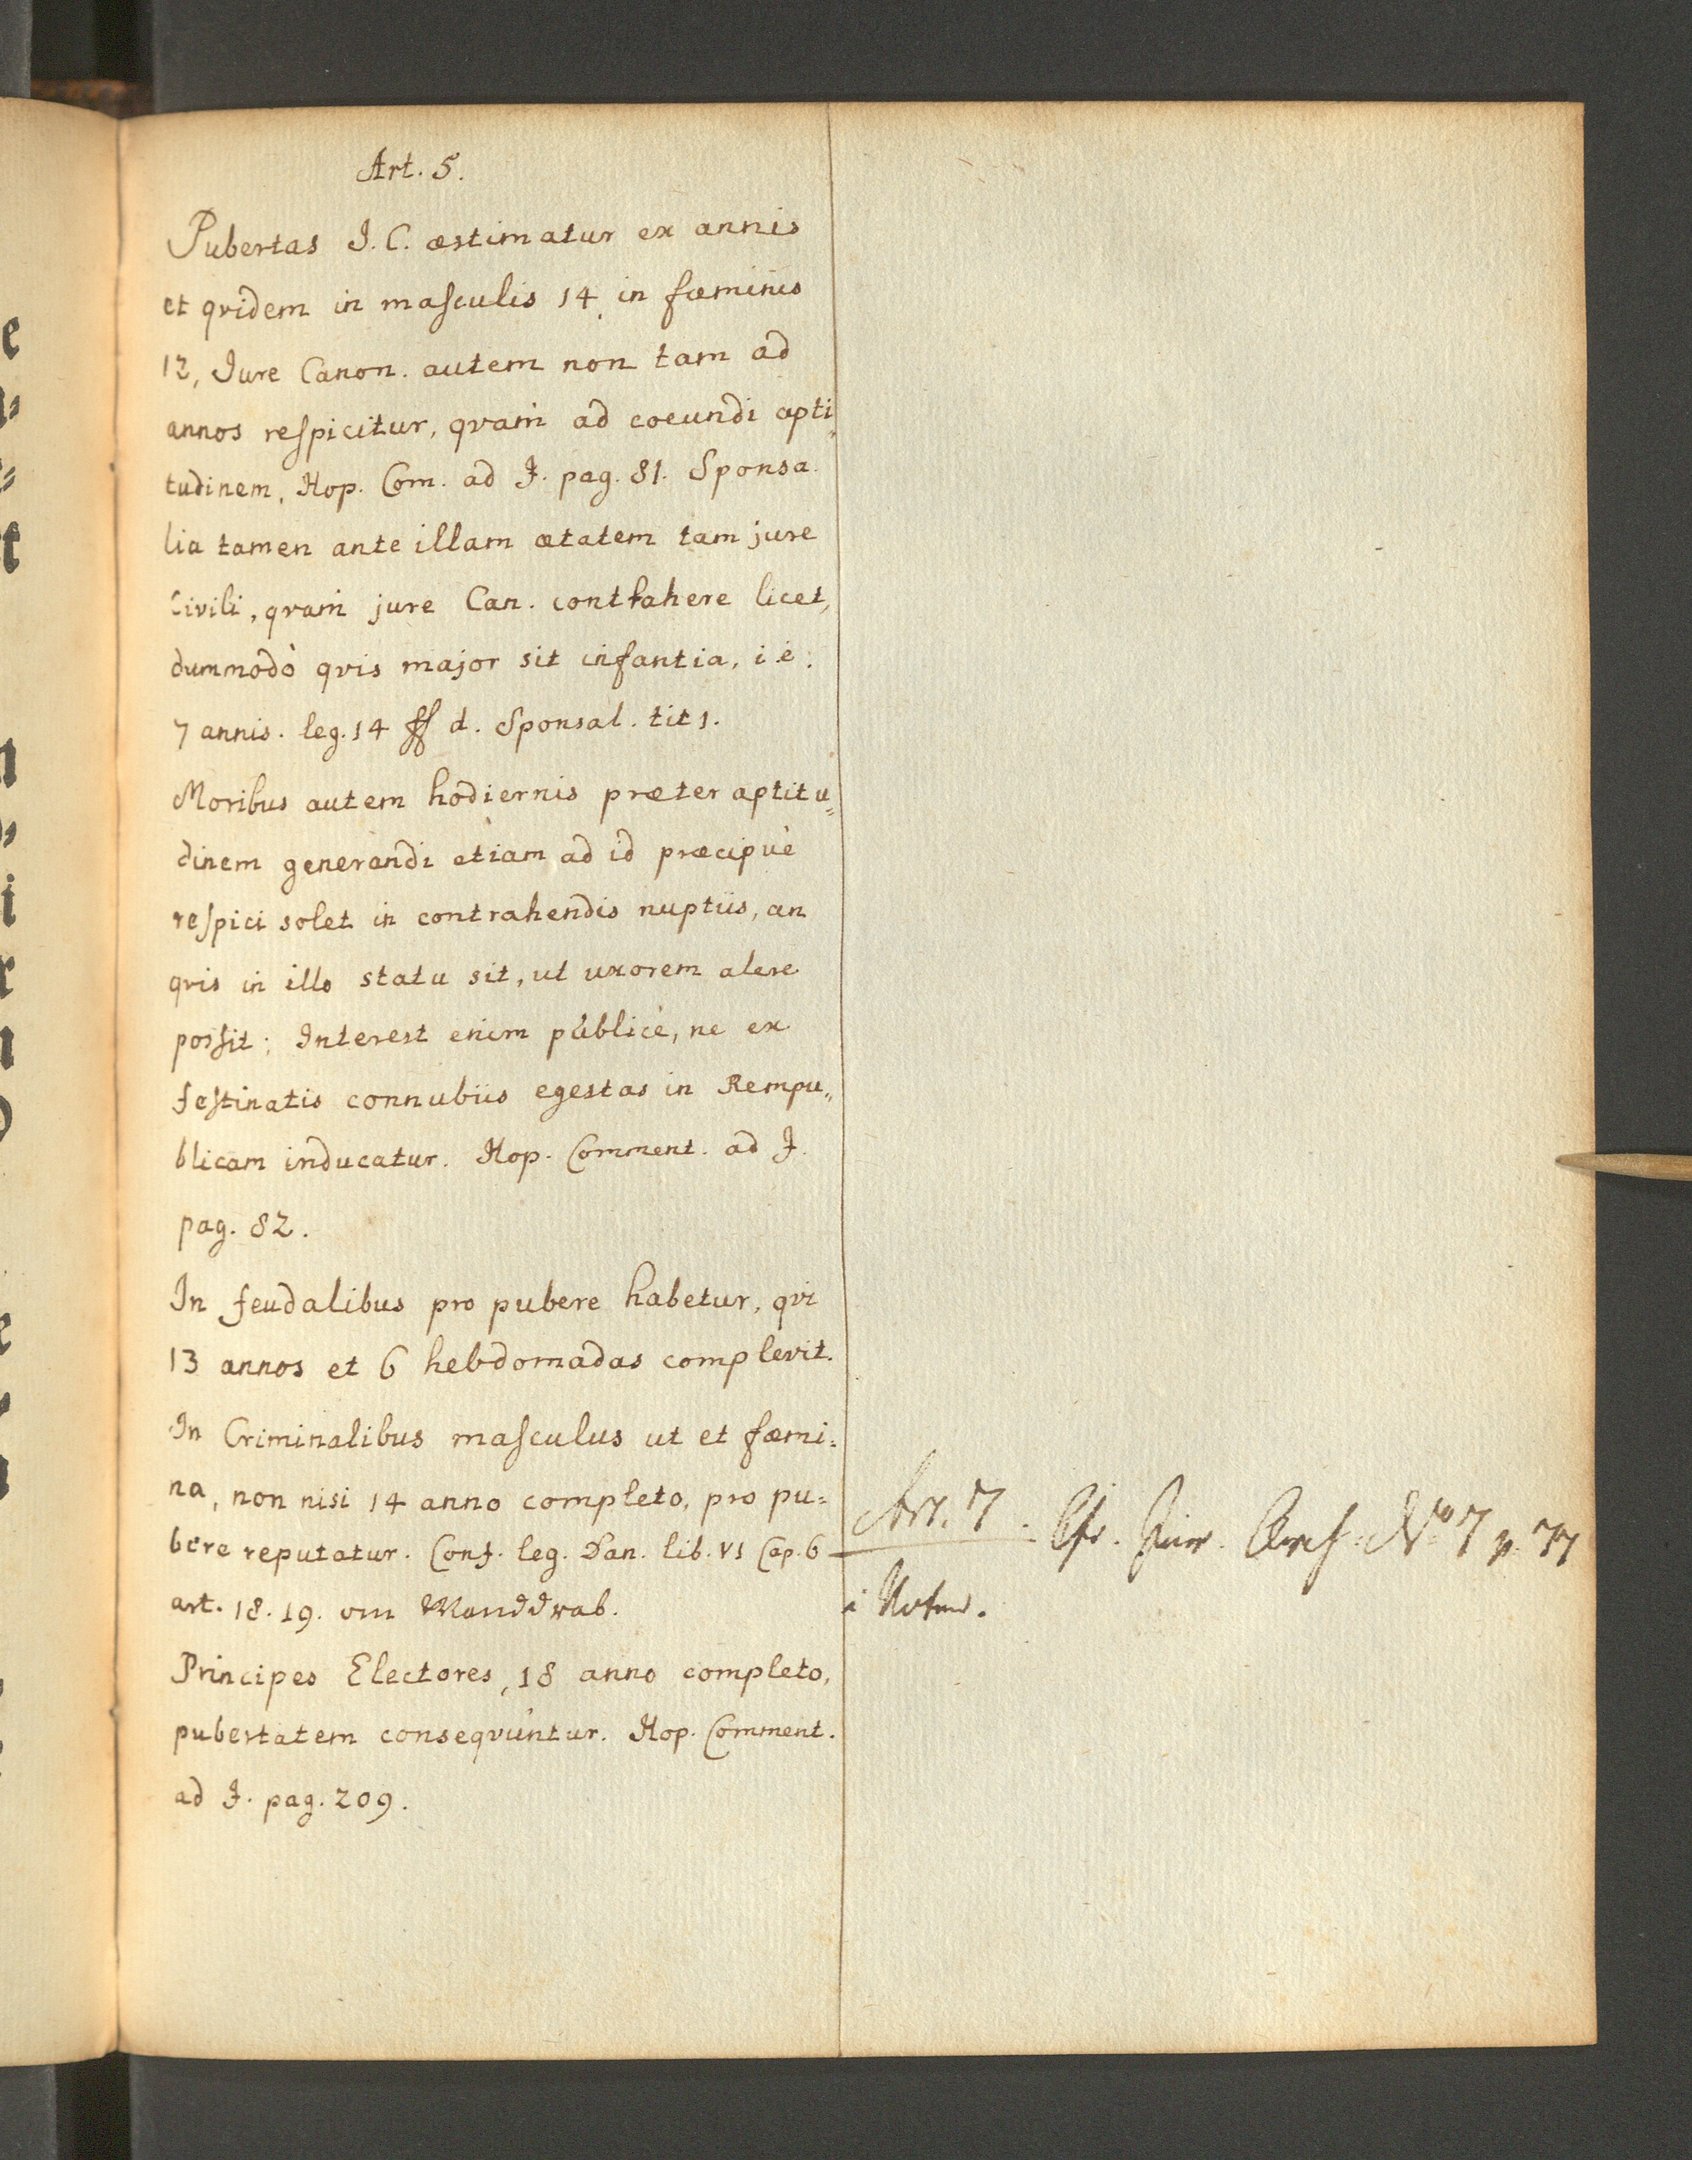 Art. 5.
Pubertas J. C. æstimatur ex annis
et qvidem in masculis 14, in fœminis
12, Jure Canon. autem non tam ad
annos respicitur, qvam ad coeundi apti„
tudinem, Hop. Com. ad J. pag. 81. Sponsa
lia tamen ante illam ætatem tam jure
Civili, qvam jure Can. contrahere licet,
dummodò qvis major sit infantia, i. e.
7 annis. leg. 14 ff d. Sponsal. tit 1.
Moribus autem hodiernis præter aptitu„
dinem generandi etiam ad id præcipuè
respici solet in contrahendis nuptiis, an
qvis in illo statu sit, ut uxorem alere
possit; Interest enim publicè, ne ex
festinatis connubiis egestas in Rempu„
blicam inducatur. Hop. Comment. ad J.
pag. 82.
In feudalibus pro pubere habetur, qvi
13 annos et 6 hebdomadas complevit.
In Criminalibus masculus ut et fœmi=
na, non nisi 14 anno completo, pro pu=
bere reputatur. Conf. leg. Dan. lib. VI Cap. 6
art. 18. 19. om Manddrab.
Principes Electores, 18 anno completo,
pubertatem conseqvuntur. Hop. Comment.
ad J. pag. 209.
Art. 7. Cfr. Jur. Arch. No 7 p. 77
i Noten.